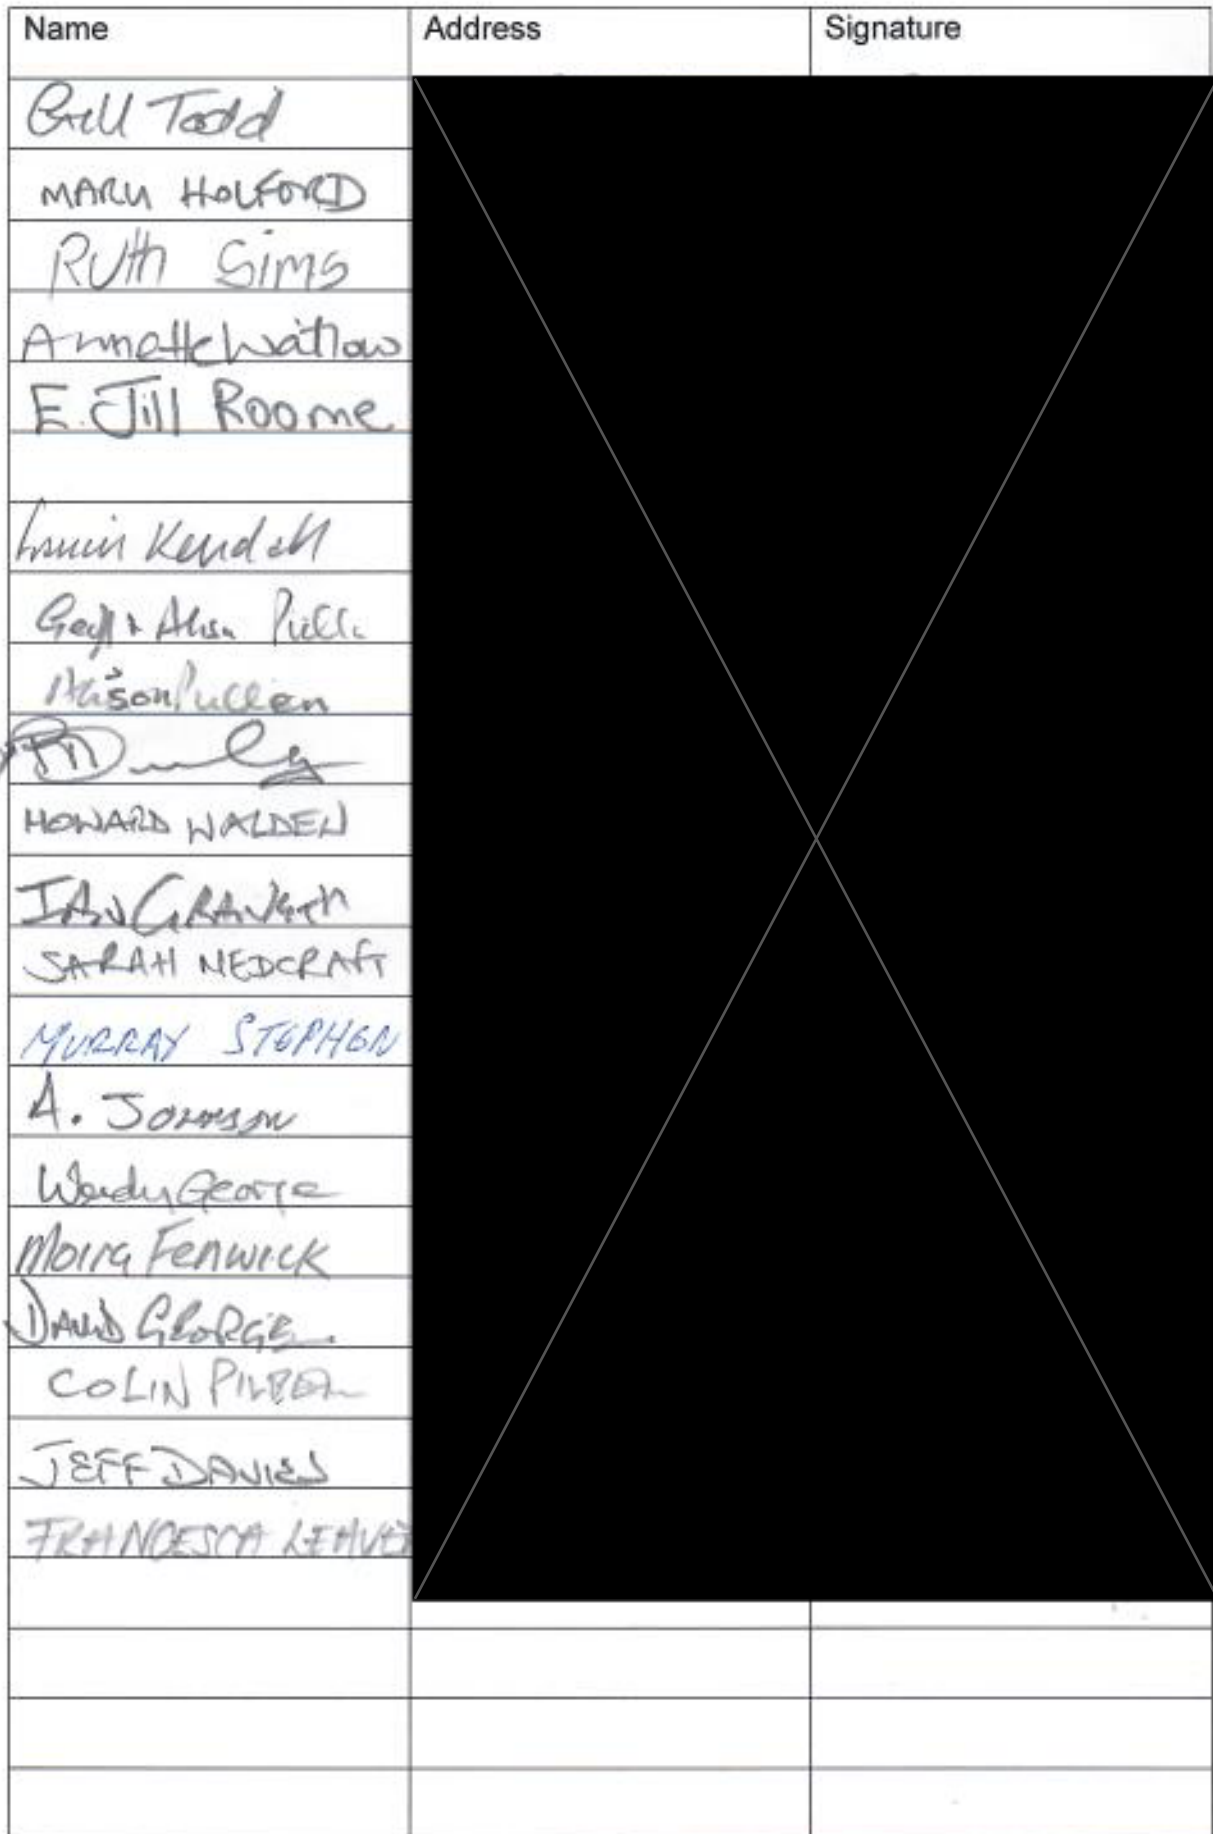 Name Address Signature
Gill Todd
MARY HOLFORD
RUTH SIMS
Annette Watlow
E. Jill Roome
Kendall
Geoff + Alison
Alison Pullen
HOWARD WALDEN
IAN
SARAH MEDCRAFT
MURRAY STEPHEN
A. JOHNSON
Wendy George
Moira Fenwick
DAVID GEORGE
COLIN
JEFF DAVIES
FRANCESCA LEAVER